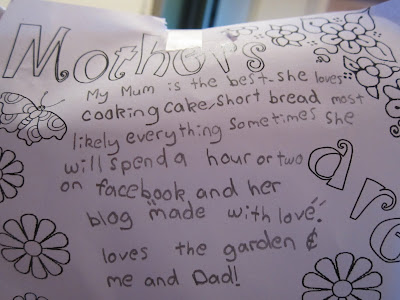 Mothers
My Mum is the best-she loves
cooking cake, short bread most
likely everything sometimes she
will spend a hour or two
on facebook and her
blog "made with love".
loves the garden &
me and Dad!
are